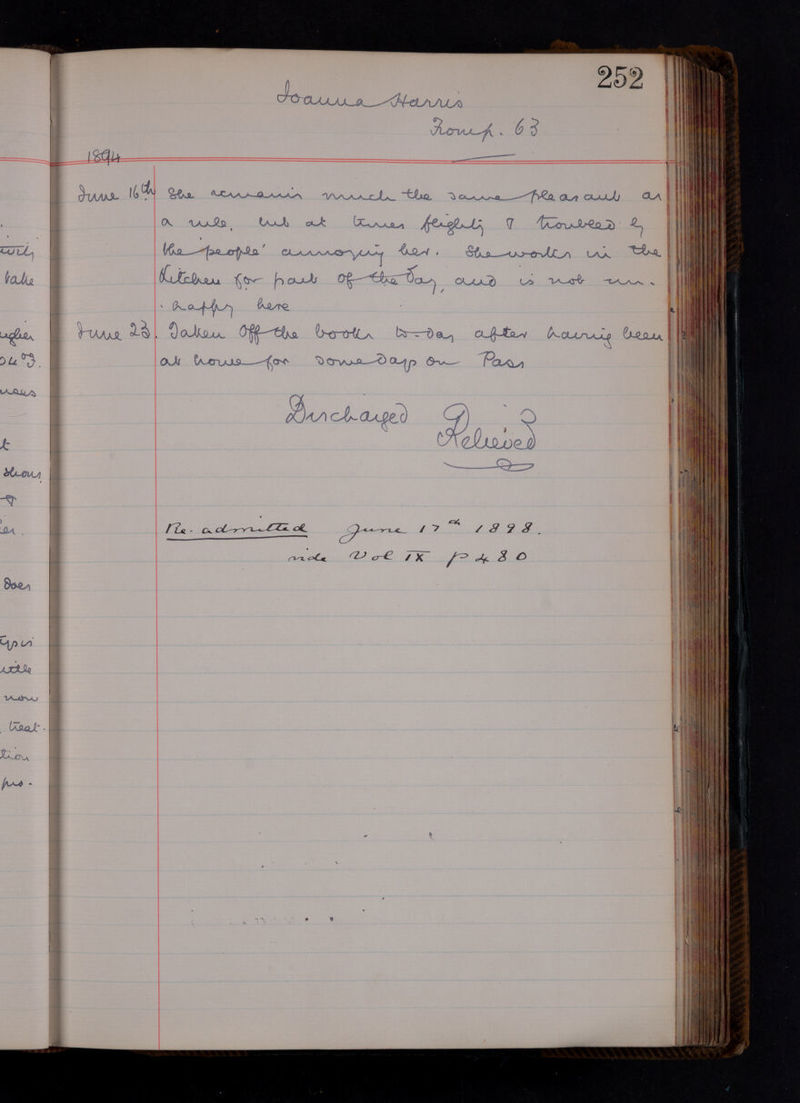 252
Joanna Harris
From p. 63
1894
June 16th She remains much the same pleasant as
a rule, but at times flighty & troubled by
the people' annoying her. She works in the
Kitchen for part of the day, and is not un-
- happy here
June 23. Taken off the books to-day after having been
at home for some days on Pass
Discharged
Relieved
Re-admitted June 17th 1898.
vide Vol IX p 480
take
t
does
now
treat-
tion
pro-